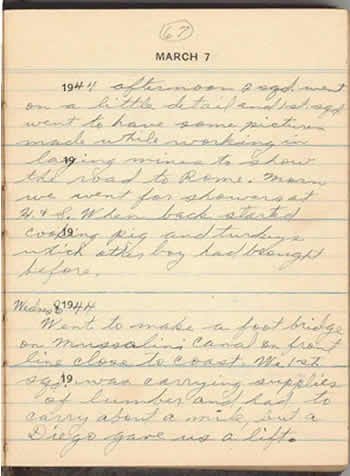 67
MARCH 7
1944 afternoon 2 sqd. went
on a little detail and 1st sqd
went to have some pictures
made while working in
laying mines to show
19
the road to Rome. Morn
we went for showers at
When back started
19
cooking pig and turkeys
which other boy had bought
before.
Wednes 8 1944
Went to make a foot bridge
on Mussalini Canal on front
line close to coast. We 1st
19
sqd. was carrying supplies
of lumber and had to
carry about a mile, but a
Diego gave us a lift.